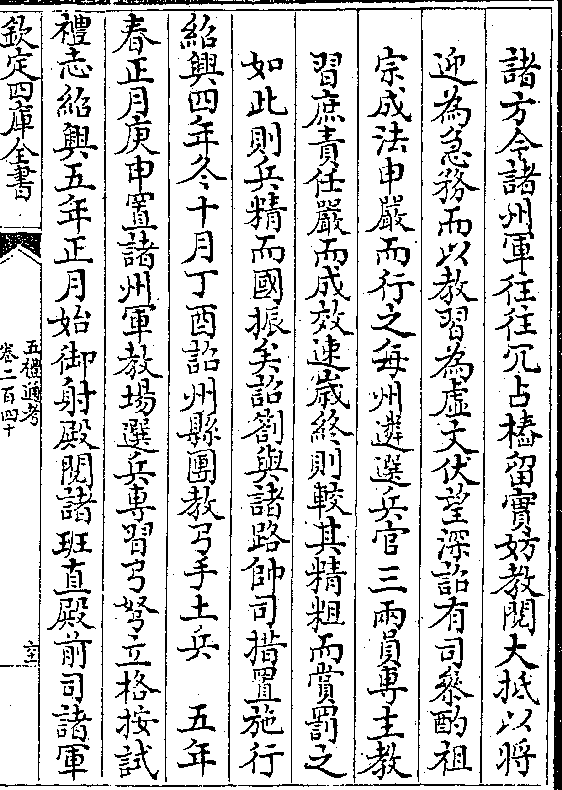 諸方今諸州軍徃徃冗占樁留實妨教閲大抵以將
迎為急務而以教習為虛文伏望深詔有司叅酌祖
宗成法申嚴而行之每州遴選兵官三兩員專主教
習庶責任嚴而成效速嵗終則較其精粗而賞罰之
如此則兵精而國振矣詔劄與諸路帥司措置施行
紹興四年冬十月丁酉詔州縣團教弓手土兵　五年
春正月庚申置諸州軍教場選兵專習弓弩立格按試
禮志紹興五年正月始御射殿閲諸班直殿前司諸軍
欽定四庫全書
五禮通考
卷二百四十